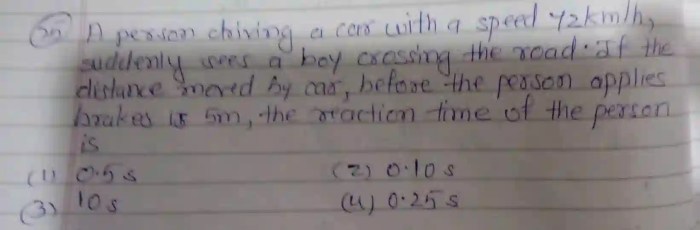 25 A person driving a car with a speed 72km/h,
suddenly sees a boy crossing the road. If the
distance moved by car, before the person applies
brakes is 5m, the reaction time of the person
is
(1) 0.5 s (2) 0.10 s
(3) 10 s (4) 0.25 s